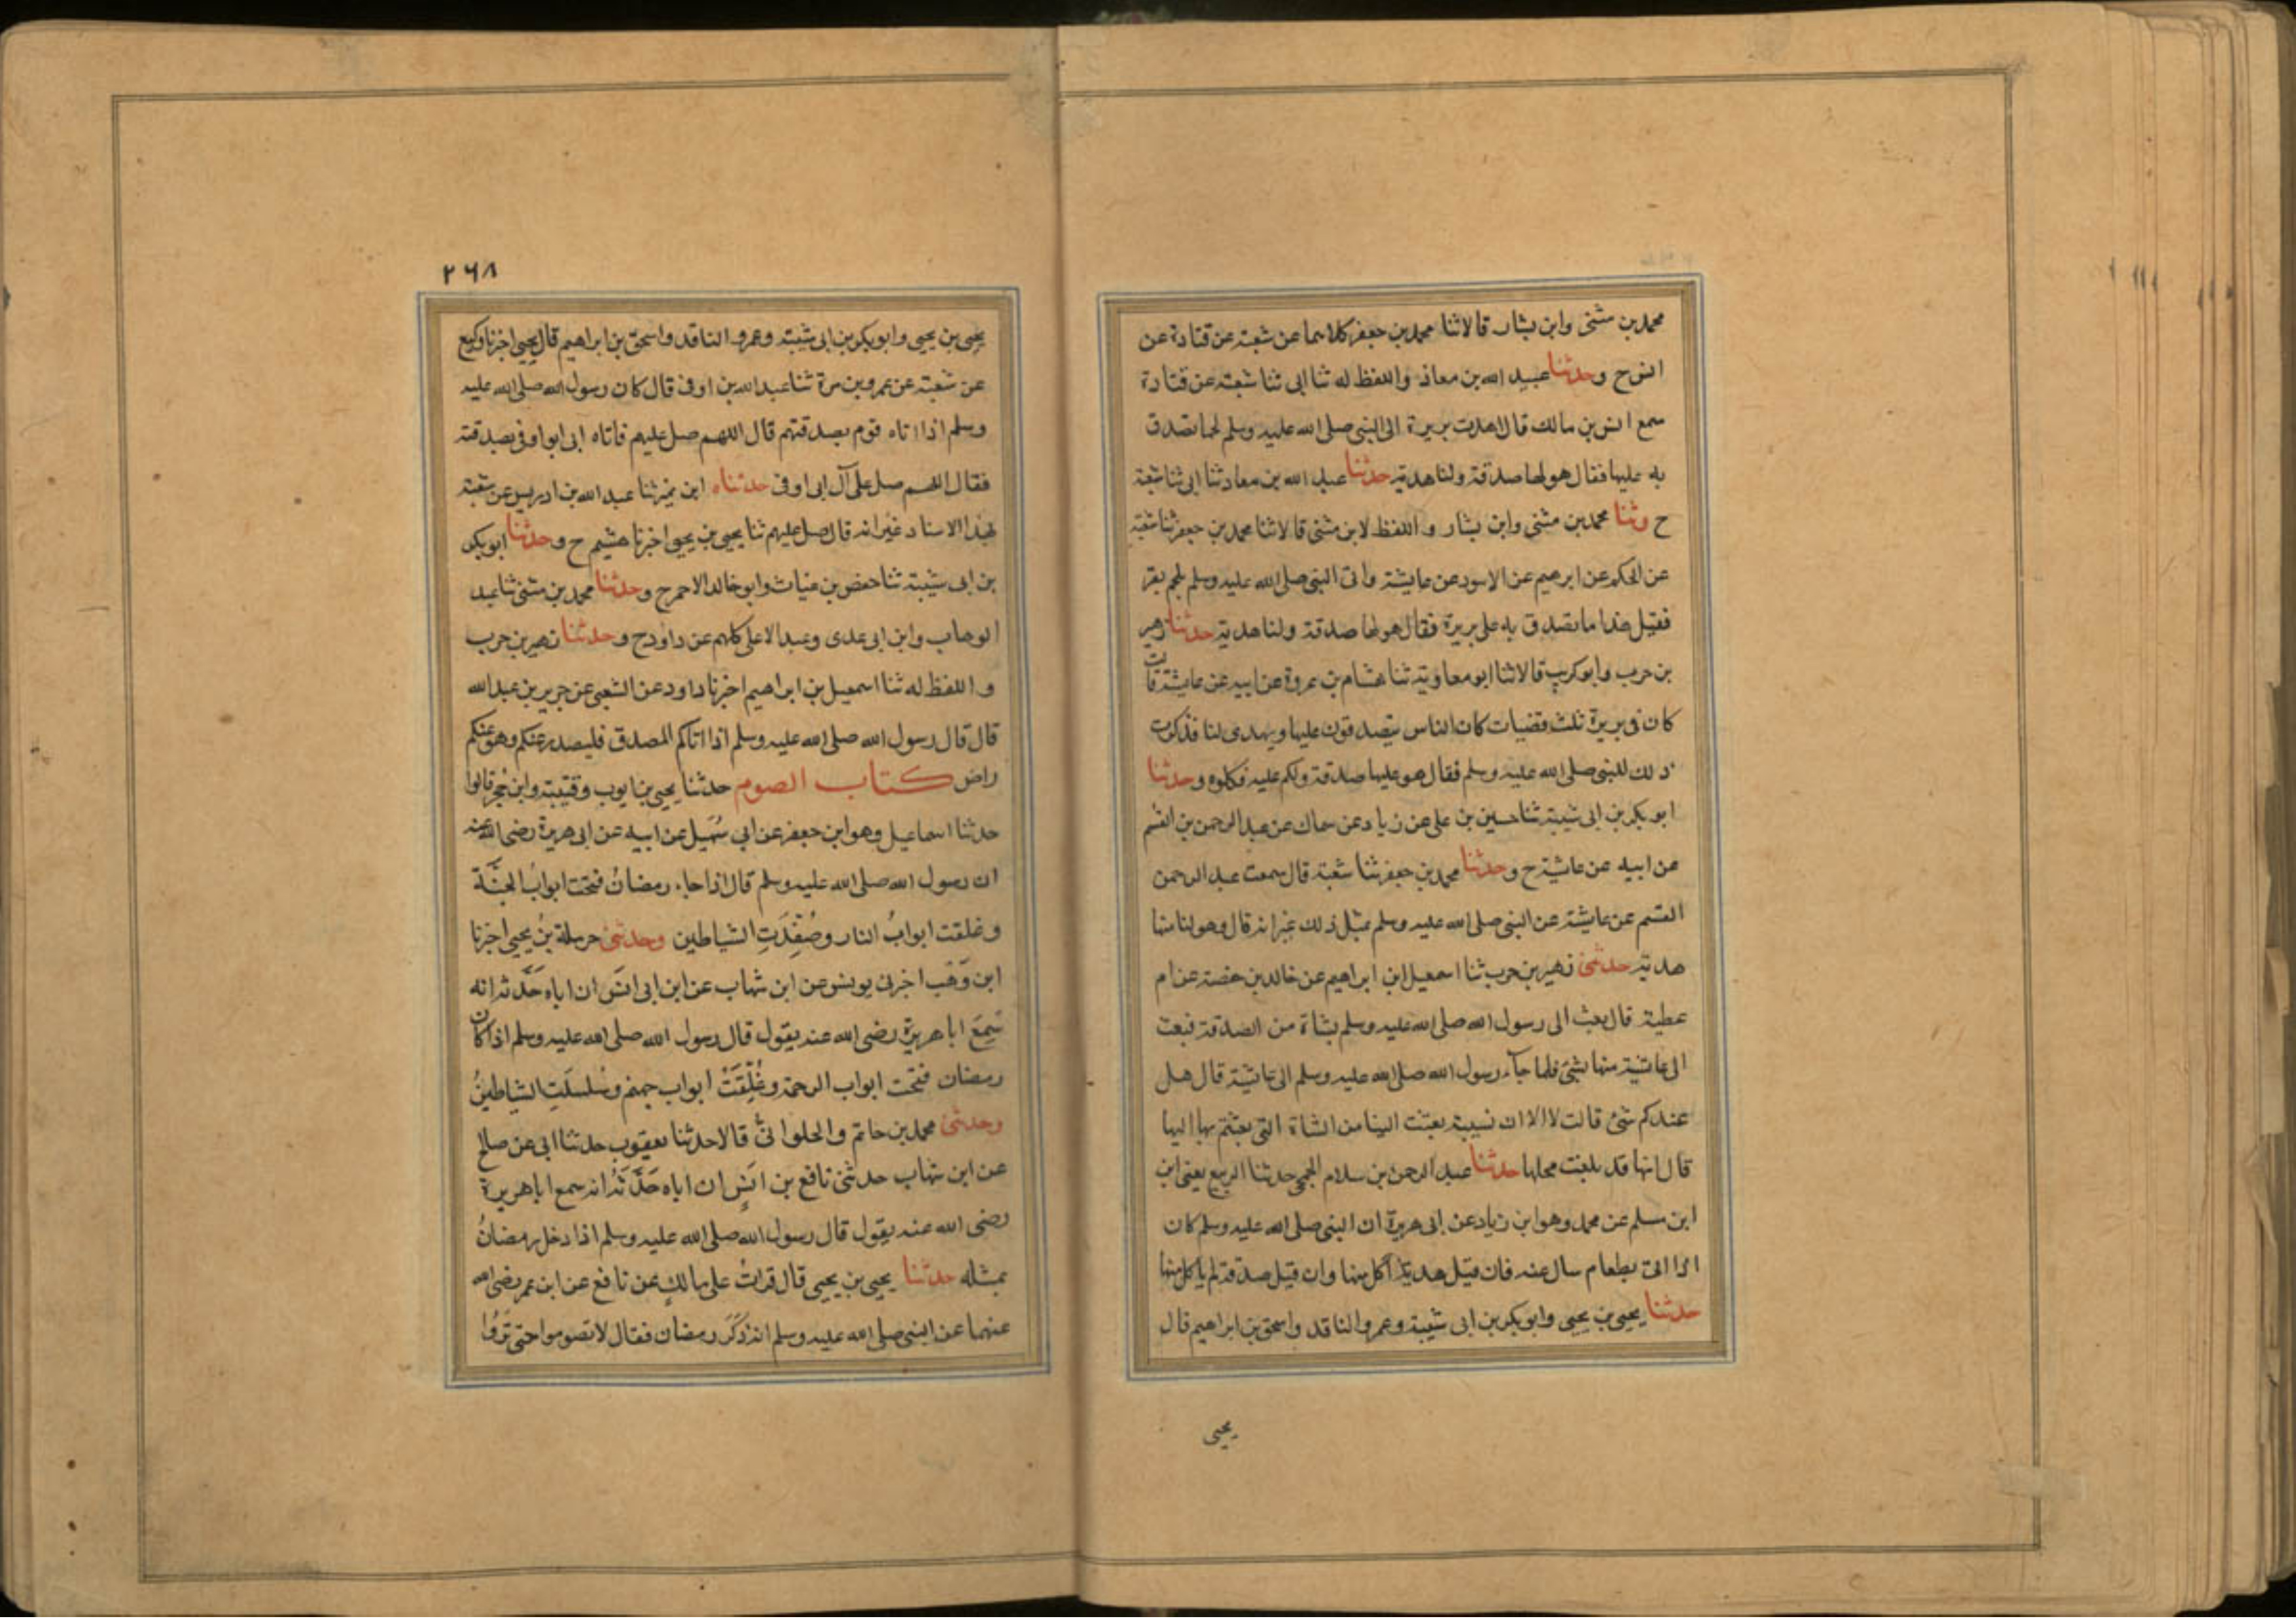 محمد بن مثنى وابن بشار قالا ثنا محمد بن جعفر كلاهما عن شعبة عن قتادة عن
انس ح وحدثنا عبيد الله بن معاذ واللفظ له ثنا ابى ثنا شعبة عن قتادة
سمع انس بن مالك قال اهدت بريرة الى النبى صلى الله عليه وسلم لحما تصدق
به عليها فقال هو لها صدقة ولنا هدية حدثنا عبيد الله بن معاذ ثنا ابى ثنا شعبة
ح وثنا محمد بن مثنى وابن بشار واللفظ لابن مثنى قالا ثنا محمد بن جعفر ثنا شعبة
عن الحكم عن ابرهيم عن الاسود عن عايشة واتى النبى صلى الله عليه وسلم بلحم بقر
فقيل هذا ما تصدق به على بريرة فقال هو لها صدقة ولنا هدية حدثنا زهير
بن حرب وابو كريب قالا ثنا ابو معاوية ثنا هشام بن عروة عن ابيه عن عايشة قالت
كان فى بريرة ثلث قضيات كان الناس يتصدقون عليها ويهدى لنا فذكرت
ذلك للنبى صلى الله عليه وسلم فقال هو عليها صدقة ولكم عليه فكلوه وحدثنا
ابو بكر بن ابى شيبة ثنا حسين بن على عن زياد عن سماك عن عبد الرحمن بن القسم
عن ابيه عن عائشة ح وحدثنا محمد بن جعفر ثنا شعبة قال سمعت عبد الرحمن
القسم عن عايشة عن النبى صلى الله عليه وسلم بمثل ذلك غير انه قال وهو لنا منها
هدية حدثنى زهير بن حرب ثنا اسمعيل ابن ابراهيم عن خالد بن حفصة عن ام
عطية قال بعث الى رسول الله صلى الله عليه وسلم بشاة من الصدقة فبعث
الى عائشة منها بشئ فلما جآء رسول الله صلى الله عليه وسلم الى عائشة قال هل
عندكم شئ قالت لا الا ان نسيبة بعثت الينا من الشاة التى بعثتم بها اليها
قال انها قد بلغت محلها حدثنا عبد الرحمن بن سلام الجمحى حدثنا الربيع يعنى ابن
ابن مسلم عن محمد وهو ابن زياد عن ابى هريرة ان النبى صلى الله عليه وسلم كان
اذا اتى بطعام سال عنه فان قيل هدية اكل منها وان قيل صدقة لم ياكل منها
حدثنا يحيى بن يحيى وابو بكر بن ابى شيبة وعمرو الناقد واسحق بن ابراهيم قال
يحيى
٢٦٨
يحيى بن يحيى وابو بكر بن ابى شيبة وعمرو الناقد واسحق بن ابراهيم قال يحيى اخبرنا وكيع
عن شعبة عن عمرو بن مرة ثنا عبد الله بن اوفى قال كان رسول الله صلى الله عليه
وسلم اذا اتاه قوم بصدقتهم قال اللهم صل عليهم فاتاه ابى ابو اوفى بصدقته
فقال اللهم صل على آل ابى اوفى حدثناه ابن نمير ثنا عبد الله بن ادريس عن شعبة
بهذا الاسناد غير انه قال صل عليهم ثنا يحيى بن يحيى اخبرنا هشيم ح وحدثنا ابو بكر
بن ابى شيبة ثنا حفص بن غياث وابو خالد الاحمر ح وحدثنا محمد بن مثنى ثنا عبد
الوهاب وابن ابى عدى وعبد الاعلى كلهم عن داود ح وحدثنا زهير بن حرب
واللفظ له ثنا اسمعيل بن ابراهيم اخبرنا داود عن الشعبى عن جرير بن عبد الله
قال قال رسول الله صلى الله عليه وسلم اذا اتاكم المصدق فليصدر عنكم وهو عنكم
راض كتاب الصوم حدثنا يحيى بن ايوب وقتيبة وابن حُجر قالوا
حدثنا اسماعيل وهو ابن جعفر عن ابي سُهَيل عن ابيه عن ابى هريرة رضى الله عنه
ان رسول الله صلى الله عليه وسلم قال اذا جاء رمضانُ فتحت ابوابُ الجنَّة
وغلقت ابوابُ النار وصُفِّدَتِ الشياطين وحدثنى حرملة بنُ يحيى اخبرنا
ابن وَهَب اخبرنى يونس عن ابن شهاب عن ابن ابى انَس ان اباه حَدَّثه انه
سَمِعَ ابا هريرة رضى الله عنه يقول قال رسول الله صلى الله عليه وسلم اذا كان
رمضان فتحت ابواب الرحمة وغُلِّقَتْ ابواب جهنم وسُلسلَتِ الشياطينُ
وحدثنى محمد بن حاتم والحلوانىُّ قالا حدثنا يعقوب حدثنا ابى عن صالح
عن ابن شهاب حدثنى نافع بن انَسٍ ان اباه حَدَّثَهُ انه سمع ابا هريرة
رضى الله عنه يقول قال رسول الله صلى الله عليه وسلم اذا دخل رمضانُ
بمثله حدثنا يحيى بن يحيى قال قراتُ على مالكٍ عن نافع عن ابن عمر رضى الله
عنهما عن النبى صلى الله عليه وسلم انه ذَكَرَ رمضان فقال لا تصوموا حتى تَرَوُا